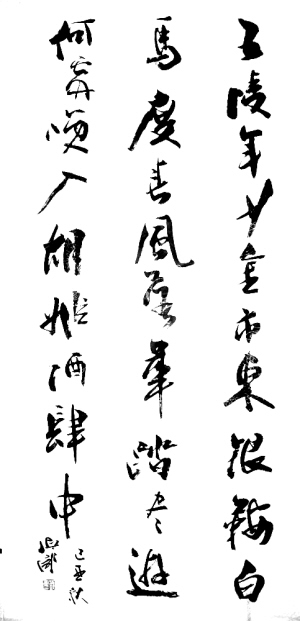 五陵年少金市東銀鞍白
馬度春風落華踏盡遊
何處咲入胡姬酒肆中
己亥秋